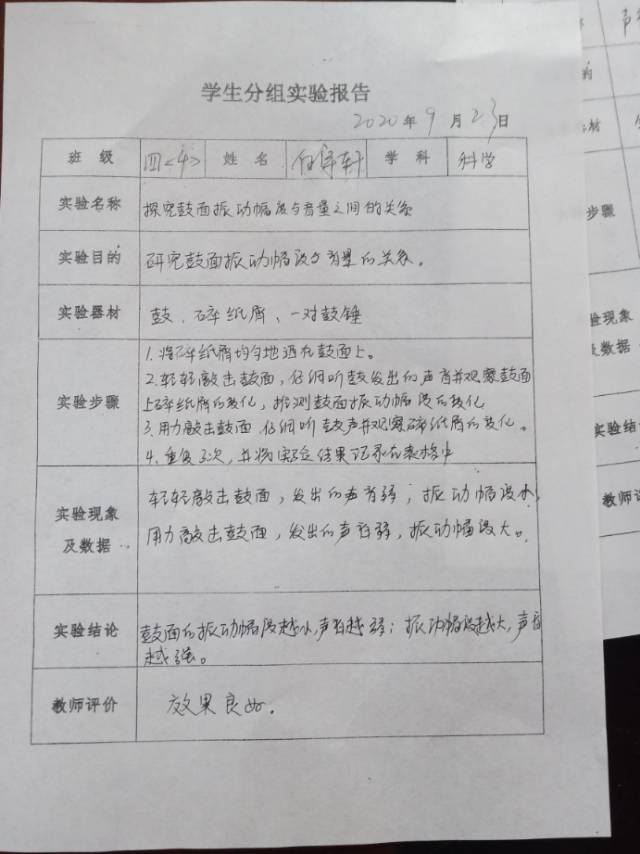 学生分组实验报告
2020年9月23日
班 级 四<4> 姓 名 任宇轩 学 科 科学
实验名称 探究鼓面振动幅度与音量之间的关系
实验目的 研究鼓面振动幅度与音量的关系。
实验器材 鼓、碎纸屑、一对鼓锤
实验步骤
1.将碎纸屑均匀地洒在鼓面上。
2.轻轻敲击鼓面,仔细听鼓发出的声音并观察鼓面
上碎纸屑的变化,推测鼓面振动幅度的变化
3.用力敲击鼓面 仔细听鼓声并观察碎纸屑的变化。
4.重复3次,并将实验结果记录在表格中
实验现象
及数据
轻轻敲击鼓面,发出的声音弱;振动幅度小
用力敲击鼓面,发出的声音强,振动幅度大。
实验结论 鼓面的振动幅度越小,声音越弱;振动幅度越大,声音
越强。
教师评价 效果良好。
步骤
验现象
及数据
实验结
教师评